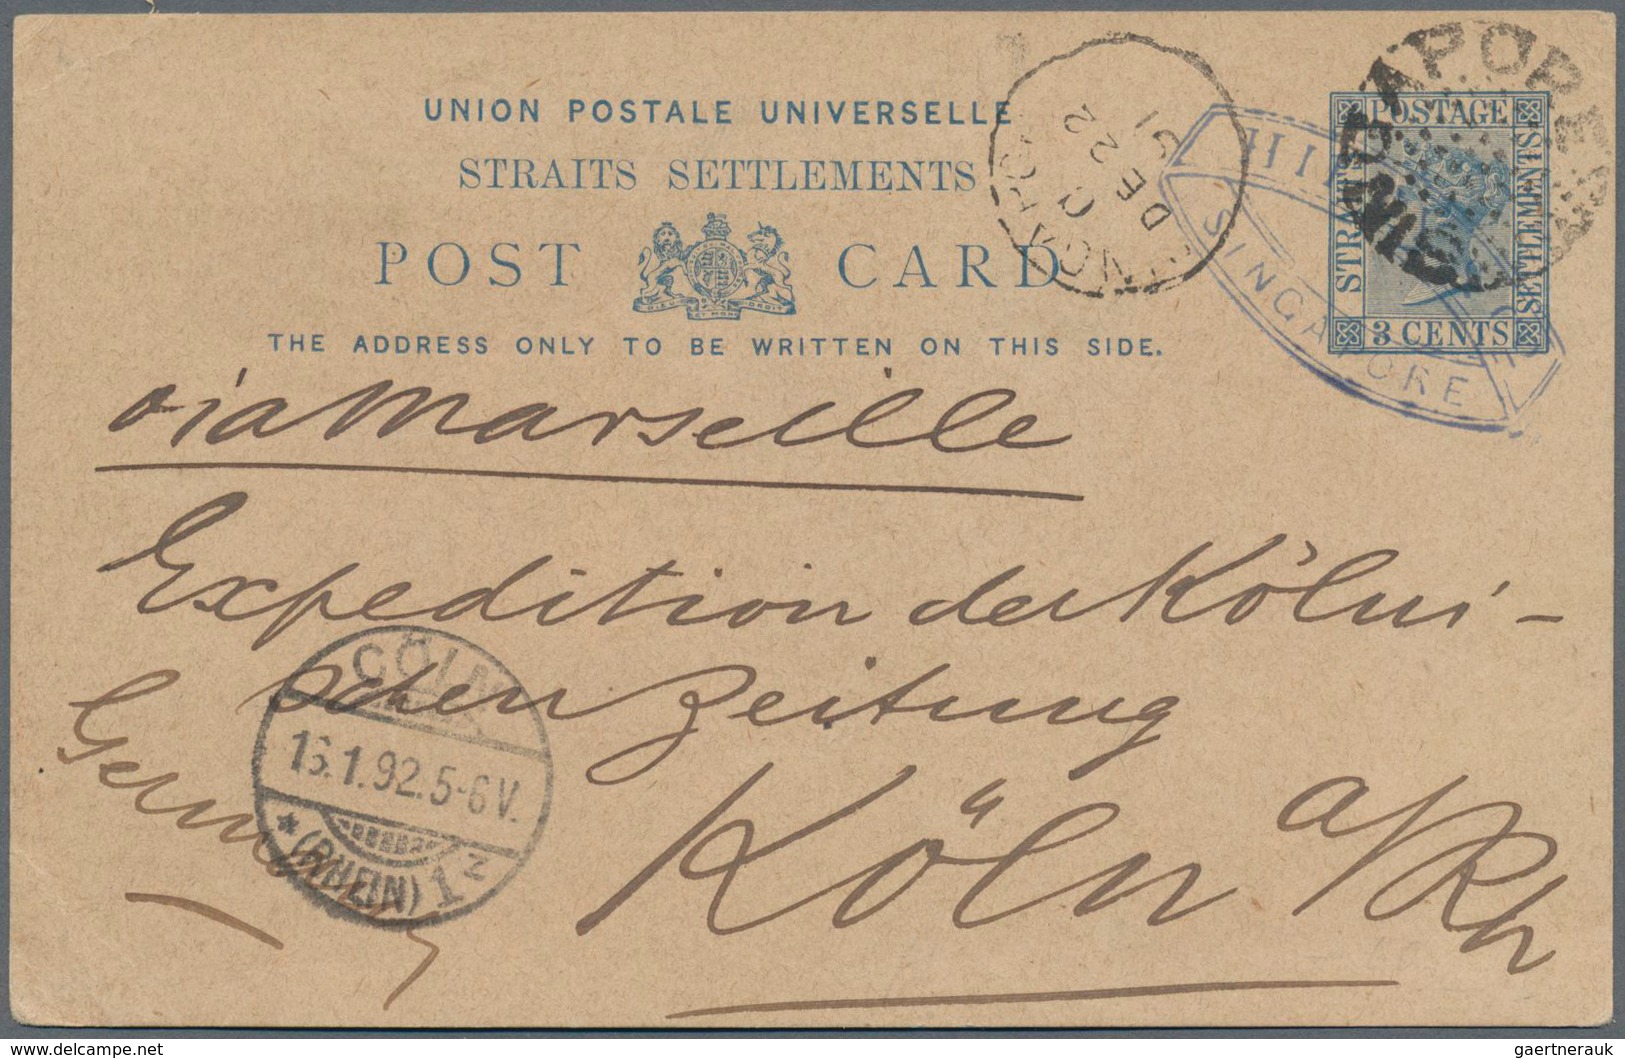 UNION POSTALE UNIVERSELLE
STRAITS SETTLEMENTS
POST CARD
DIEU ET MON DROIT
THE ADDRESS ONLY TO BE WRITTEN ON THIS SIDE.
SINGAPORE
D
DE 22
91
SINGAPORE
POSTAGE
STRAITS
SETTLEMENTS
3 CENTS
SINGAPORE
via Marseille
Expedition der Kölni-
schen Zeitung
Köln a/Rh
Germany
CÖLN
16.1.92.5-6V.
* (RHEIN) 1 z
delcampe.net
gaertnerauk